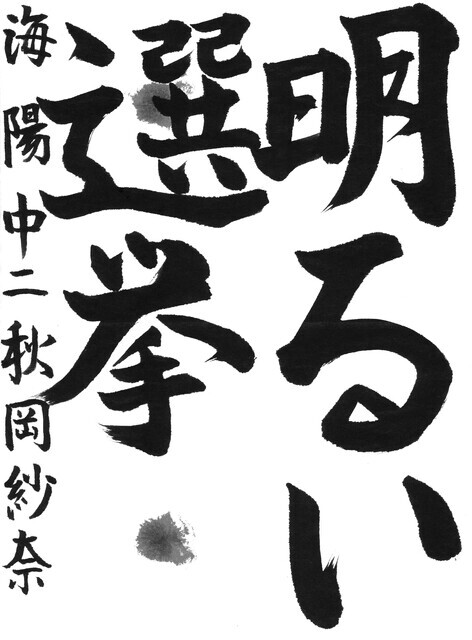 明るい
選挙
海陽中二秋岡紗奈